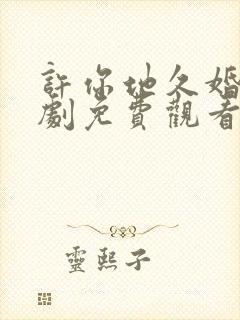 許你地久婚
劇免費觀看
靈熙子